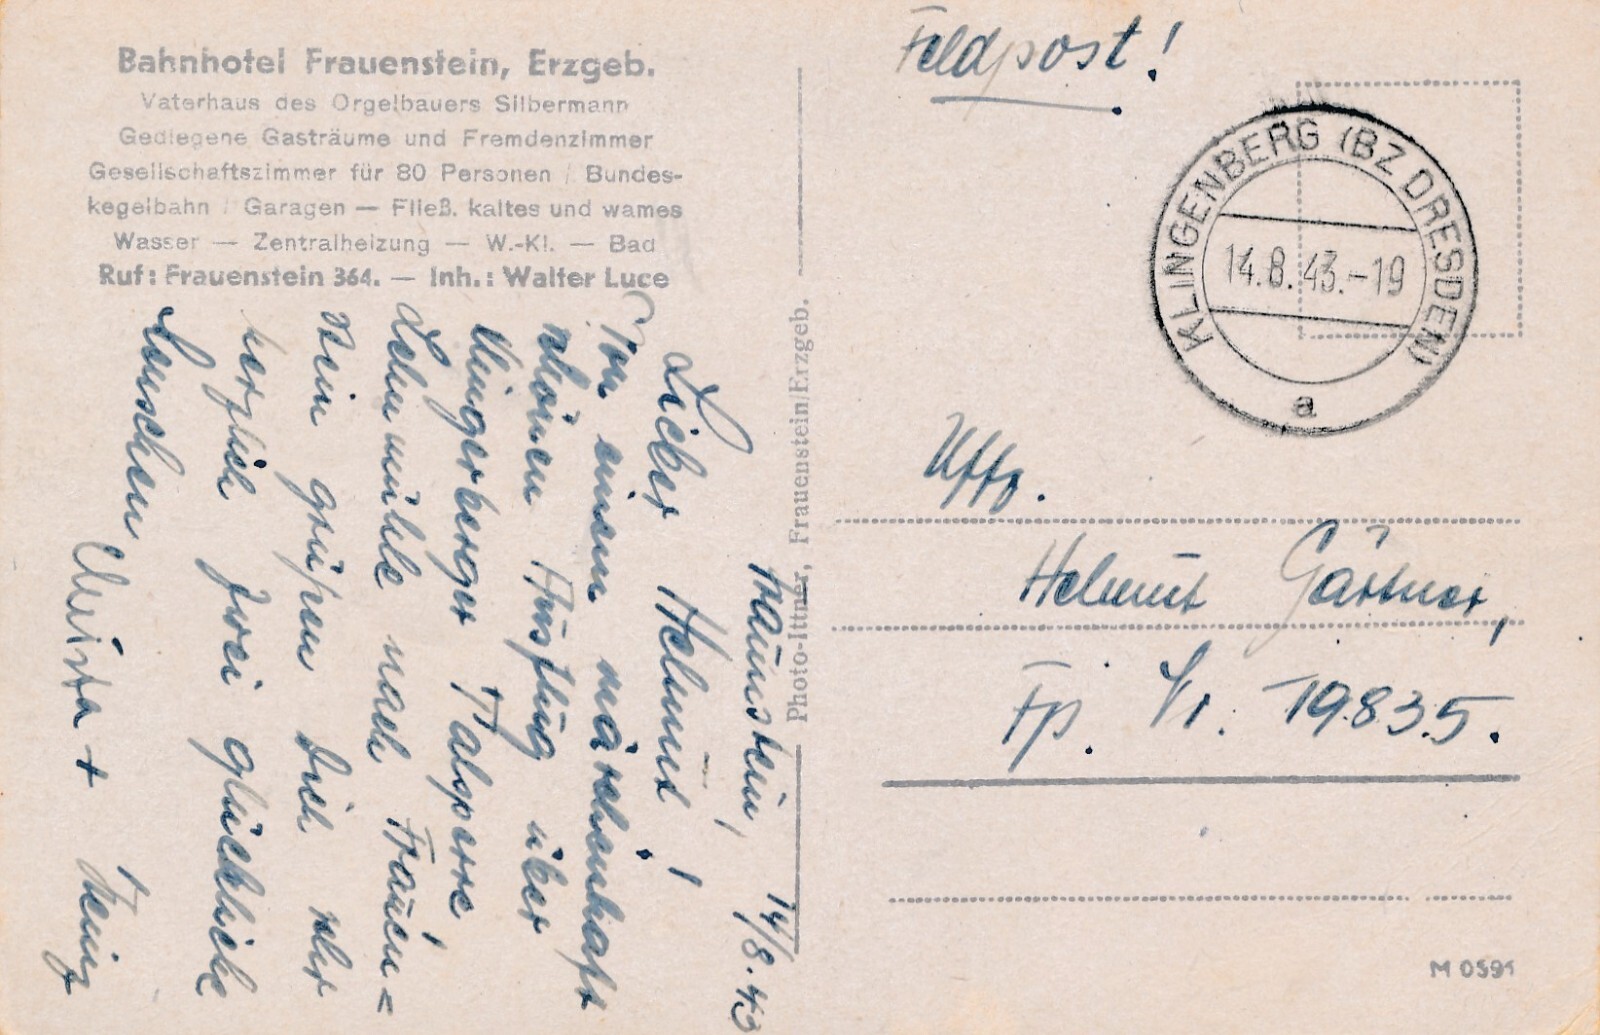 Bahnhotel Frauenstein, Erzgeb.
Vaterhaus des Orgelbauers Silbermann
Gediegene Gasträume und Fremdenzimmer
Gesellschaftszimmer für 80 Personen / Bundes-
kegelbahn / Garagen — Fließ. kaltes und wames
Wasser — Zentralheizung — W.-Kl. — Bad
Ruf: Frauenstein 364. — Inh.: Walter Luce
Frauenstein, 14/8.43
Lieber Helmut!
Von einem märchenhaft
schönen Ausflug über
Klingenberger Talsperre
Lehnmühle nach Frauen=
stein grüßen Dich sehr
herzlich zwei glückliche
Menschen
Christa + Heinz
Photo-Ittner, Frauenstein/Erzgeb.
Feldpost!
KLINGENBERG (BZ DRESDEN)
14.8.43.-19
a
Uffz.
Helmut Gärtner,
Fp. Nr. 19835.
M 0591